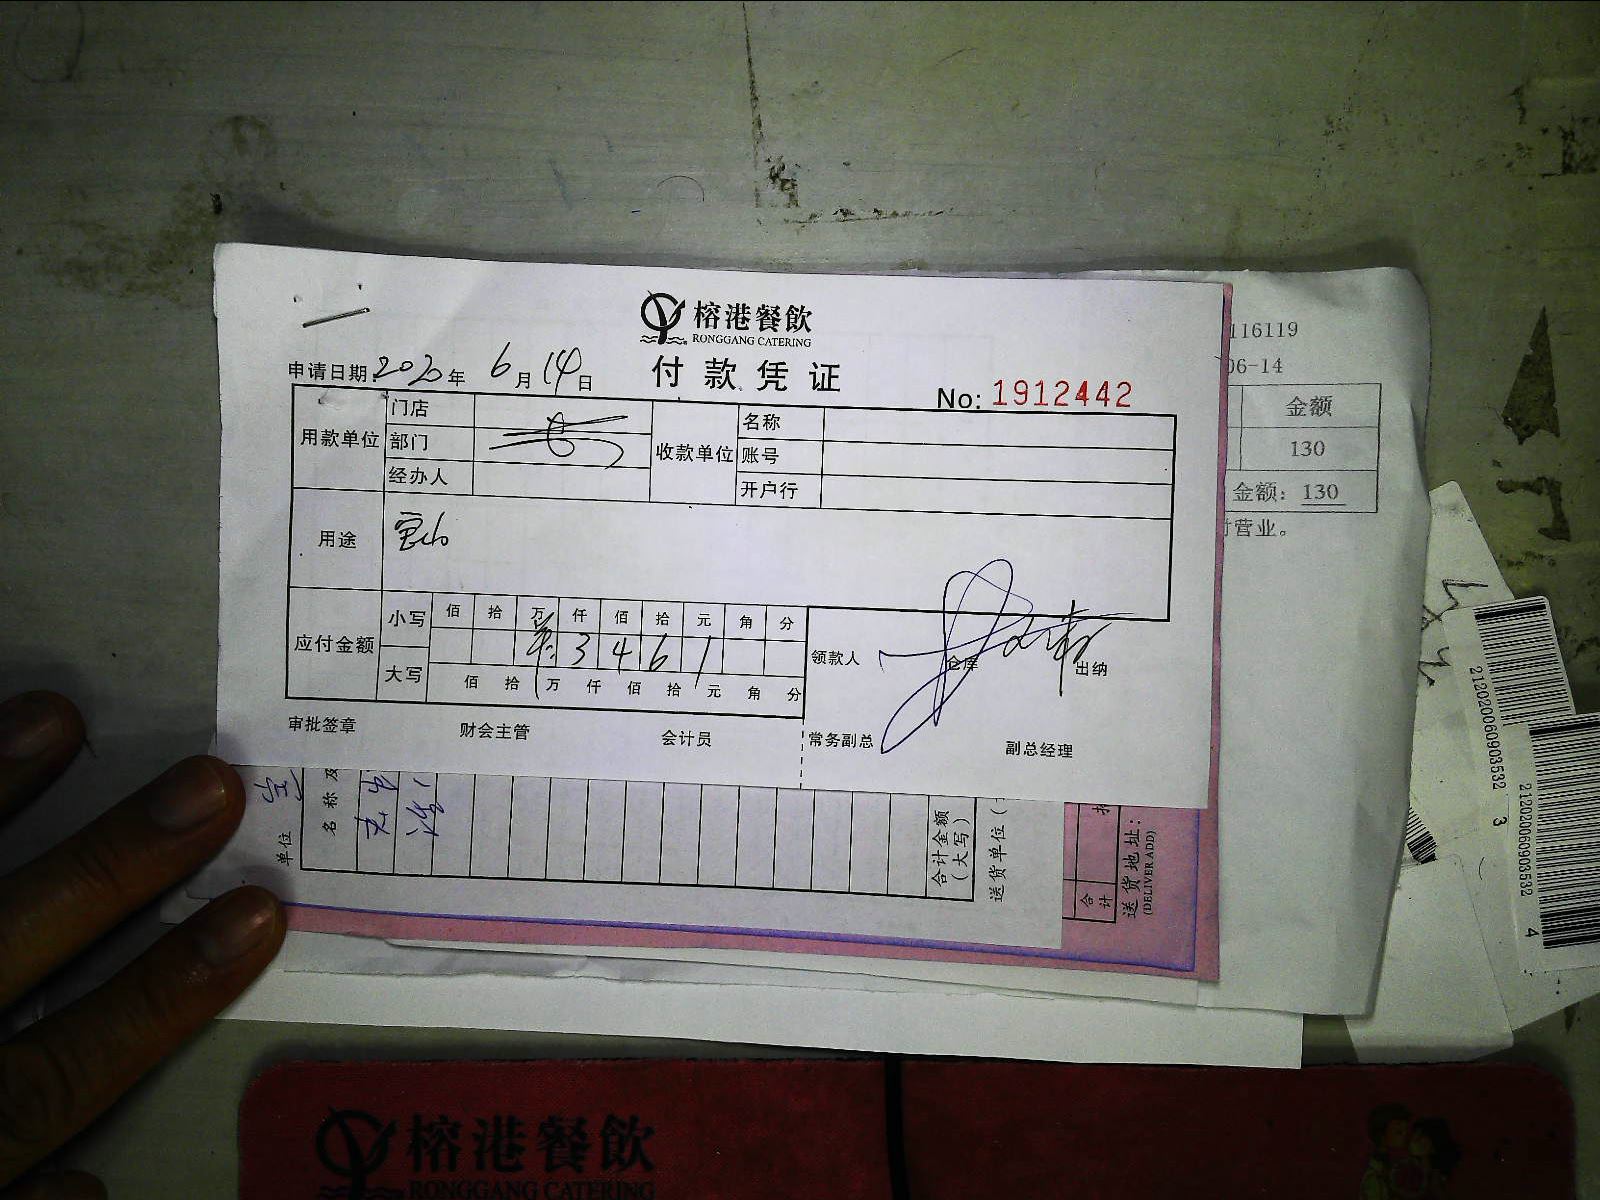 榕港餐飲
RONGGANG CATERING
付款凭证
申请日期 2020年 6月 14日
No: 1912442
用款单位 门店 收款单位 名称
部门 账号
经办人 开户行
用途
应付金额 小写 佰 拾 万 仟 佰 拾 元 角 分
3 4 6 1
大写 佰 拾 万 仟 佰 拾 元 角 分
领款人 仓库 出纳
审批签章 财会主管 会计员 常务副总 副总经理
116119
06-14
金额
130
金额：130
营业。
单位
名称及
合计金额
（大写）
送货单位（
合计
送货地址：
(DELIVER ADD)
212020060903532 3
212020060903532 4
榕港餐飲
RONGGANG CATERING